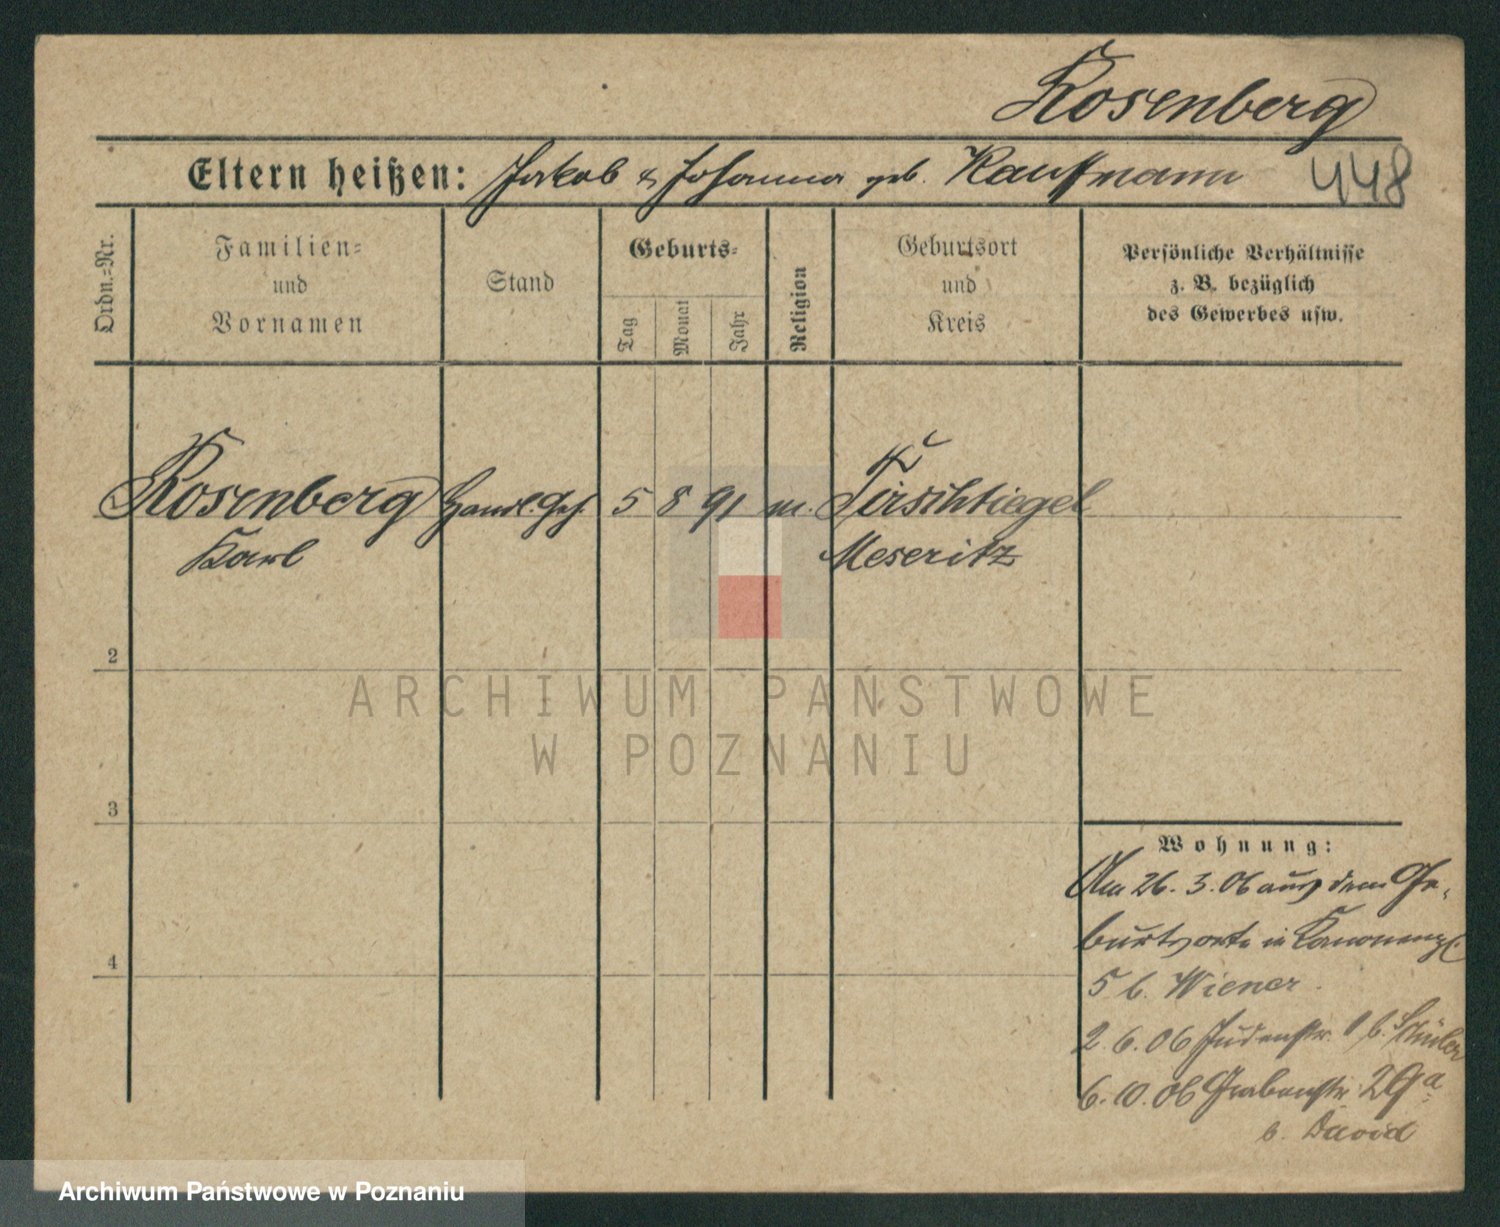 Rosenberg
Eltern heißen: Jakob & Johanna geb. Kauffmann
448
Ordn.=Nr.
Familien=
und
Vornamen
Stand
Geburts=
Tag
Monat
Jahr
Religion
Geburtsort
und
Kreis
Persönliche Verhältnisse
z. B. bezüglich
des Gewerbes usw.
Rosenberg Handl. Geh. 5 8 91 m. Tirschtiegel
Karl Meseritz
2
ARCHIWUM PAŃSTWOWE
W POZNANIU
3
Wohnung:
Am 26.3.06 aus dem Ge-
burtsorte in Kanonenpl.
4
5 b. Wiener.
2.6.06 Judenstr. 1 b.
6.10.06 Grabenstr. 29a
b. David
Archiwum Państwowe w Poznaniu